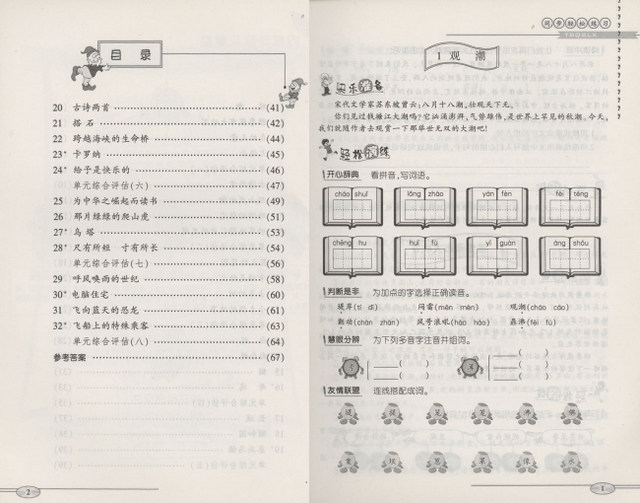 目录
20 古诗两首 (41)
21 搭石 (42)
22 跨越海峡的生命桥 (44)
23* 卡罗纳 (45)
24* 给予是快乐的 (46)
单元综合评估(六) (47)
25 为中华之崛起而读书 (49)
26 那片绿绿的爬山虎 (51)
27* 乌塔 (53)
28* 尺有所短 寸有所长 (54)
单元综合评估(七) (56)
29 呼风唤雨的世纪 (58)
30* 电脑住宅 (60)
31 飞向蓝天的恐龙 (61)
32* 飞船上的特殊乘客 (63)
单元综合评估(八) (64)
参考答案 (67)
2
同步轻松练习
1 观潮
快乐
宋代文学家苏东坡曾云:八月十八潮,壮观天下无。
你们见过钱塘江大潮吗?它汹涌澎湃,气势雄伟,是世界上罕见的秋潮。今天,
我们就随作者去观赏一下那举世无双的大潮吧!
轻松训练
开心辞典 看拼音,写词语。
cháo shuǐ lǒng zhào yán fèn fèi téng
chēng hu huī fù yí guàn áng shǒu
判断是非 为加点的字选择正确读音。
堤岸(tí dī) 闷雷(mēn mèn) 观潮(cháo cáo)
颤动(chàn zhàn) 风号浪吼(háo hào) 鼎沸(fèi fú)
慧眼分辨 为下列多音字注音并组词。
友情联盟 连线搭配成词。
1